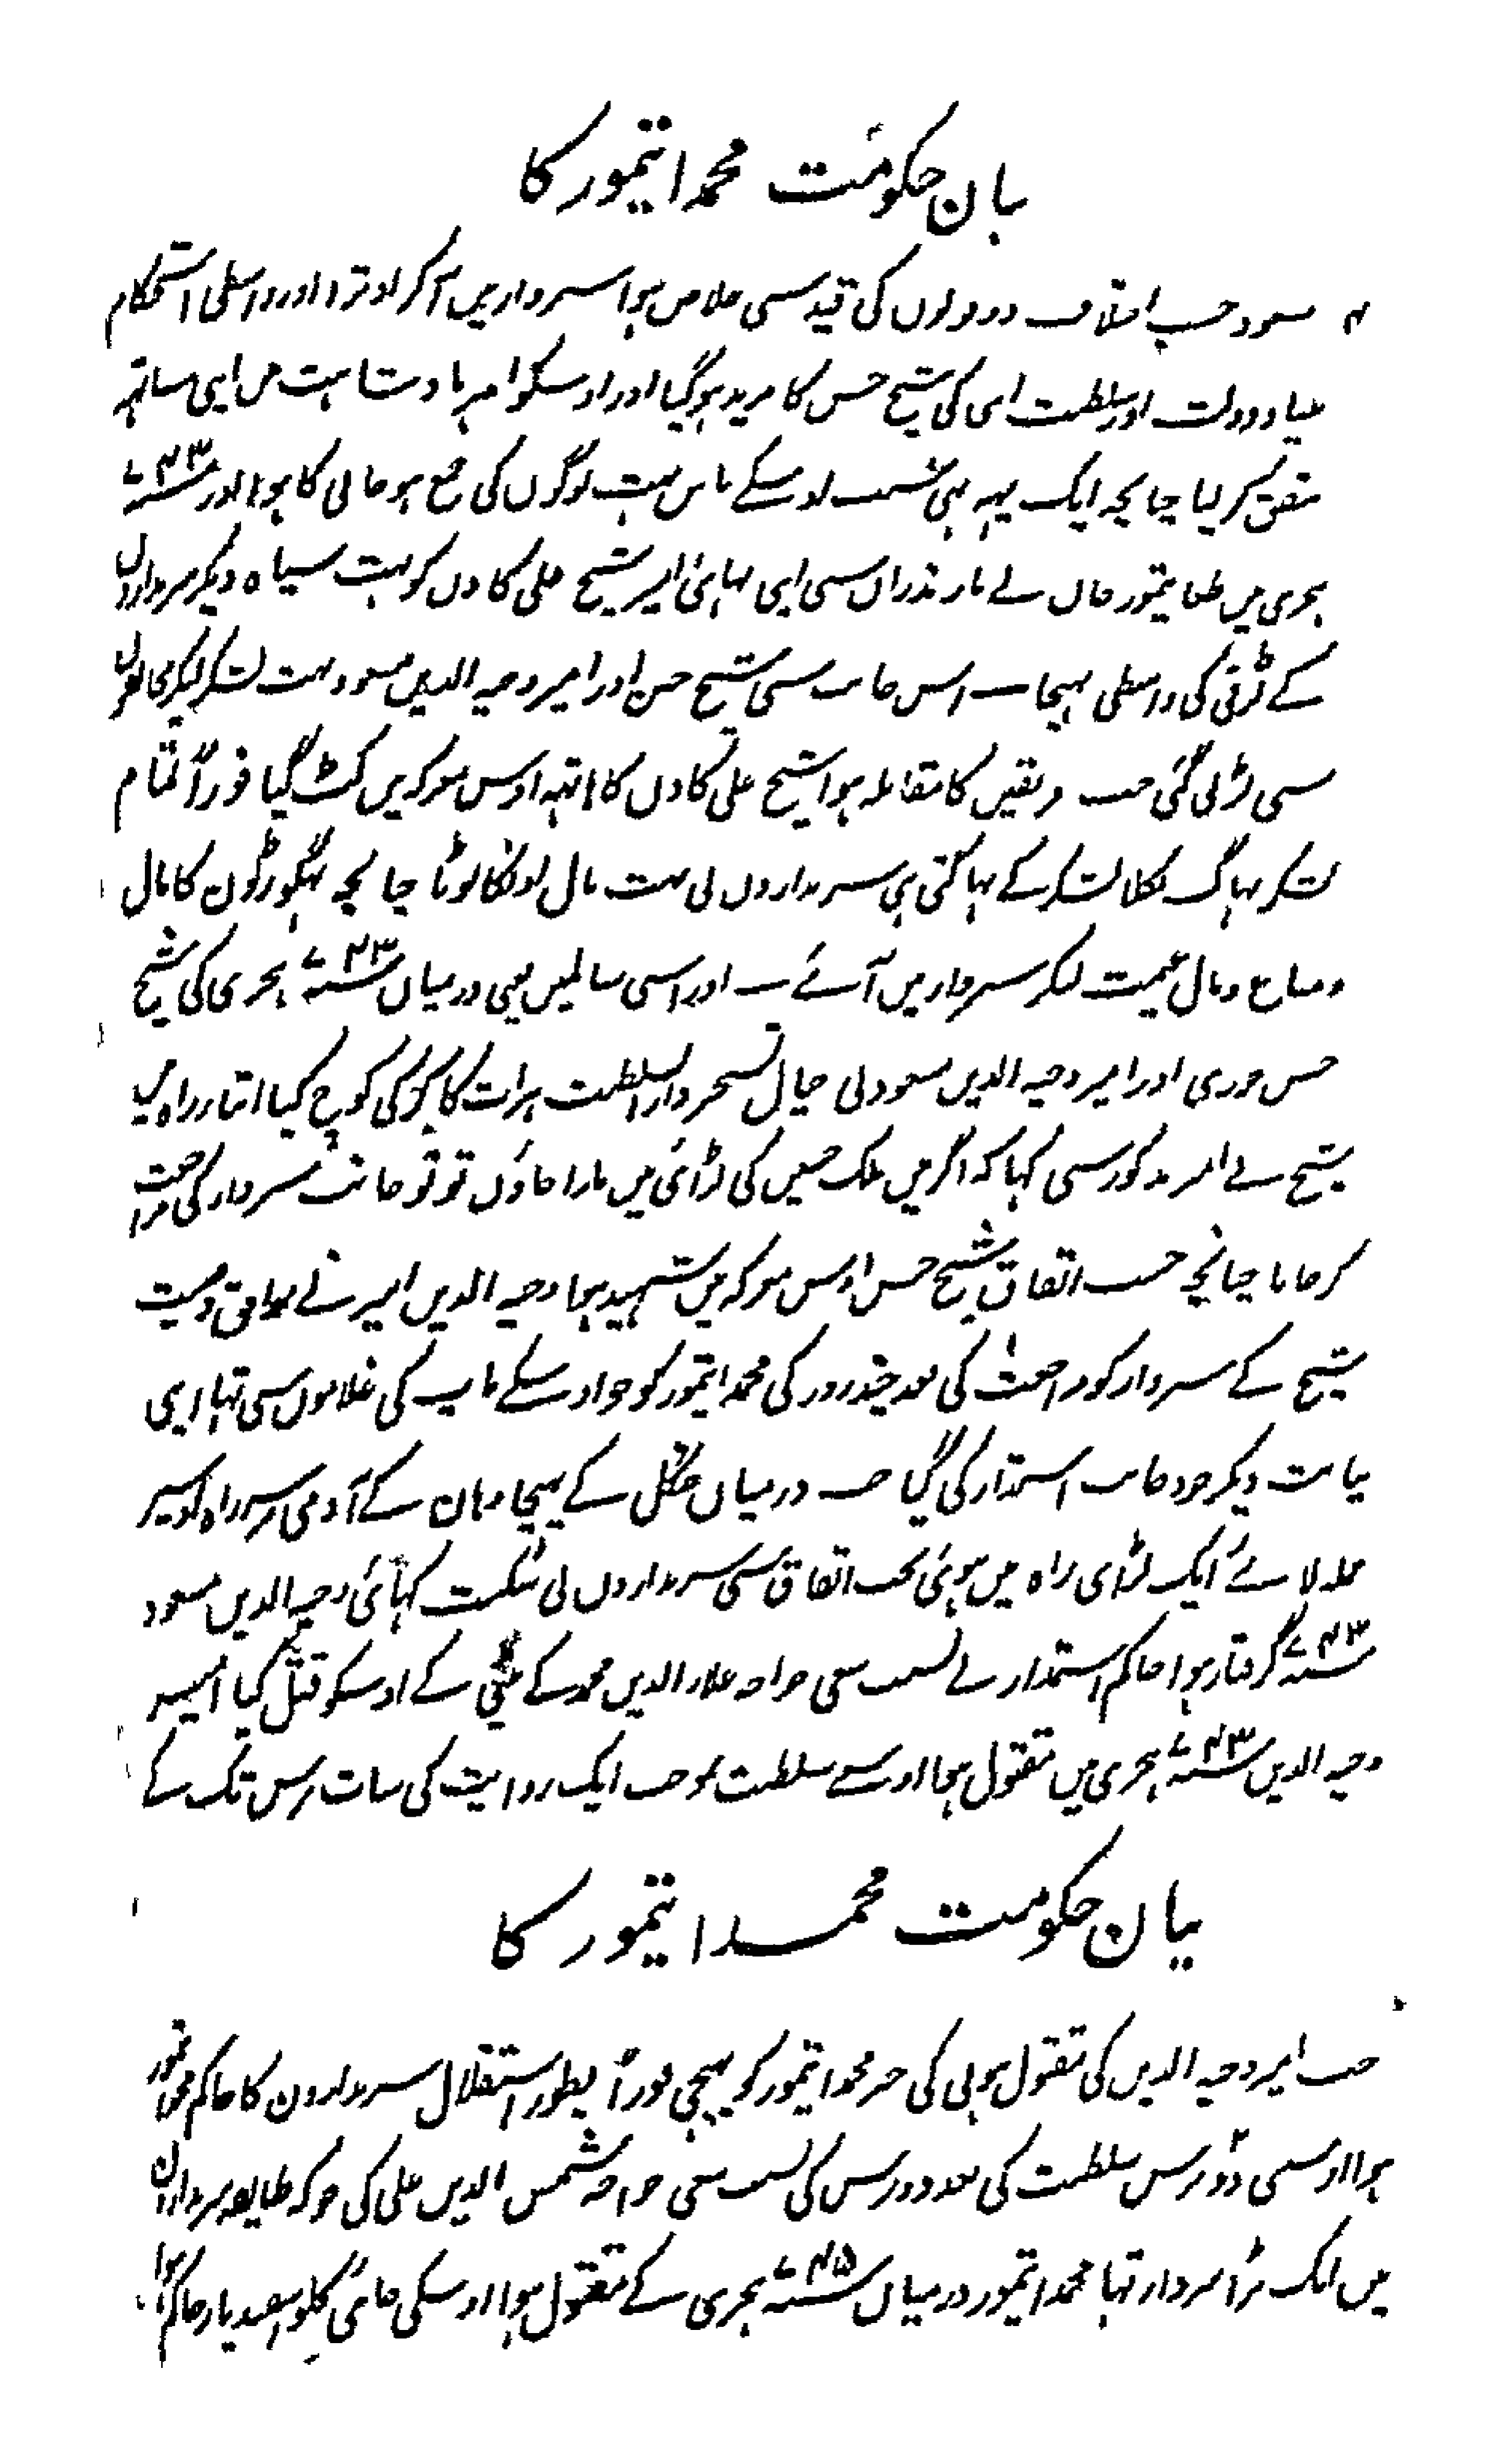 بیان حکومت محمد ایتمور کا
مسعود حسب اختلاف دونوں کی قید سی خلاص ہوا سبزوار میں آ کر اوترا اور واسطی استحکام
بنیاد دولت اور سلطنت اپنی کی شیخ حسن کا مرید ہوگیا اور اوسکو امر بادشاہت میں اپنی ساتہہ
متفق کر لیا چنانچہ ایک یہہ بہی سبب اوسکے پاس بہت لوگوں کی جمع ہو جانی کا ہوا اور ۷۴۳ سنہ
ہجری میں طغا یتمور خان نے مازندران سی اپنی بہائی امیر شیخ علی کاون کو بہت سپاہ دیکر سربداروں
کے لڑنی کی واسطی بہیجا۔ اس جانب سی شیخ حسن اور امیر وجیہ الدین مسعود بہت لشکر لیکر مخالفوں
سی لڑنی گئی جب فریقین کا مقابلہ ہوا شیخ علی کاون کا ہاتہہ اوس معرکہ میں کٹ گیا فوراً تمام
لشکر بہاگ نکلا لشکر کے بہاگتی ہی سربداروں نی بہت مال اونکا لوٹا چنانچہ بہگوڑوں کا مال
و متاع و مال غنیمت لیکر سبزوار میں آئے۔ اور اسی سالمیں یعنی درمیان ۷۴۳ سنہ ہجری کی شیخ
حسن جوری اور امیر وجیہ الدین مسعود نی خیال تسخیر دار السلطنت ہرات کا کر کی کوچ کیا اثنار راہ میں
شیخ نے امیر مذکور سی کہا کہ اگر میں ملک حسین کی لڑائی میں مارا جاؤں تو تو جانب سبزوار کی مراجعت
کر جانا چنانچہ حسب اتفاق شیخ حسن اوس معرکہ میں شہید ہوا وجیہ الدین امیر نے موافق وصیت
شیخ کے سبزوار کو مراجعت کی بعد چند روز کی محمد ایتمور کو جو اوسکے باپ کی غلاموں سی تہا اپنی
نیابت دیکر خود جانب استمدار کی گیا جب درمیان جنگل کے پہنچا وہان کے آدمی سر راہ کو گہیر
حملہ لائے ایک لڑائی راہ میں ہوئی بحسب اتفاق سی سربداروں نی شکست کہائی وجیہ الدین مسعود
۷۴۳ سنہ گرفتار ہوا حاکم استمدار نے بسبب سعی خواجہ علاء الدین محمد کے بیٹی کے اوسکو قتل کیا امیر
وجیہ الدین ۷۴۳ سنہ ہجری میں مقتول ہوا اوسے سلطنت بموجب ایک روایت کی سات برس تک کے
بیان حکومت محمد ایتمور کا
جب امیر وجیہ الدین کی مقتول ہونی کی خبر محمد ایتمور کو پہنچی فوراً بطور استقلال سربداروں کا حاکم محمد ایتمور
ہوا اوسی دو برس سلطنت کی بعد دو برس کی بسبب سعی خواجہ شمس الدین علی کی جو کہ طایفہ سربداران
میں ایک بڑا سردار تہا محمد ایتمور درمیان ۷۴۵ سنہ ہجری کے مقتول ہوا اوسکی جائی کلو اسفندیار حاکم ہوا